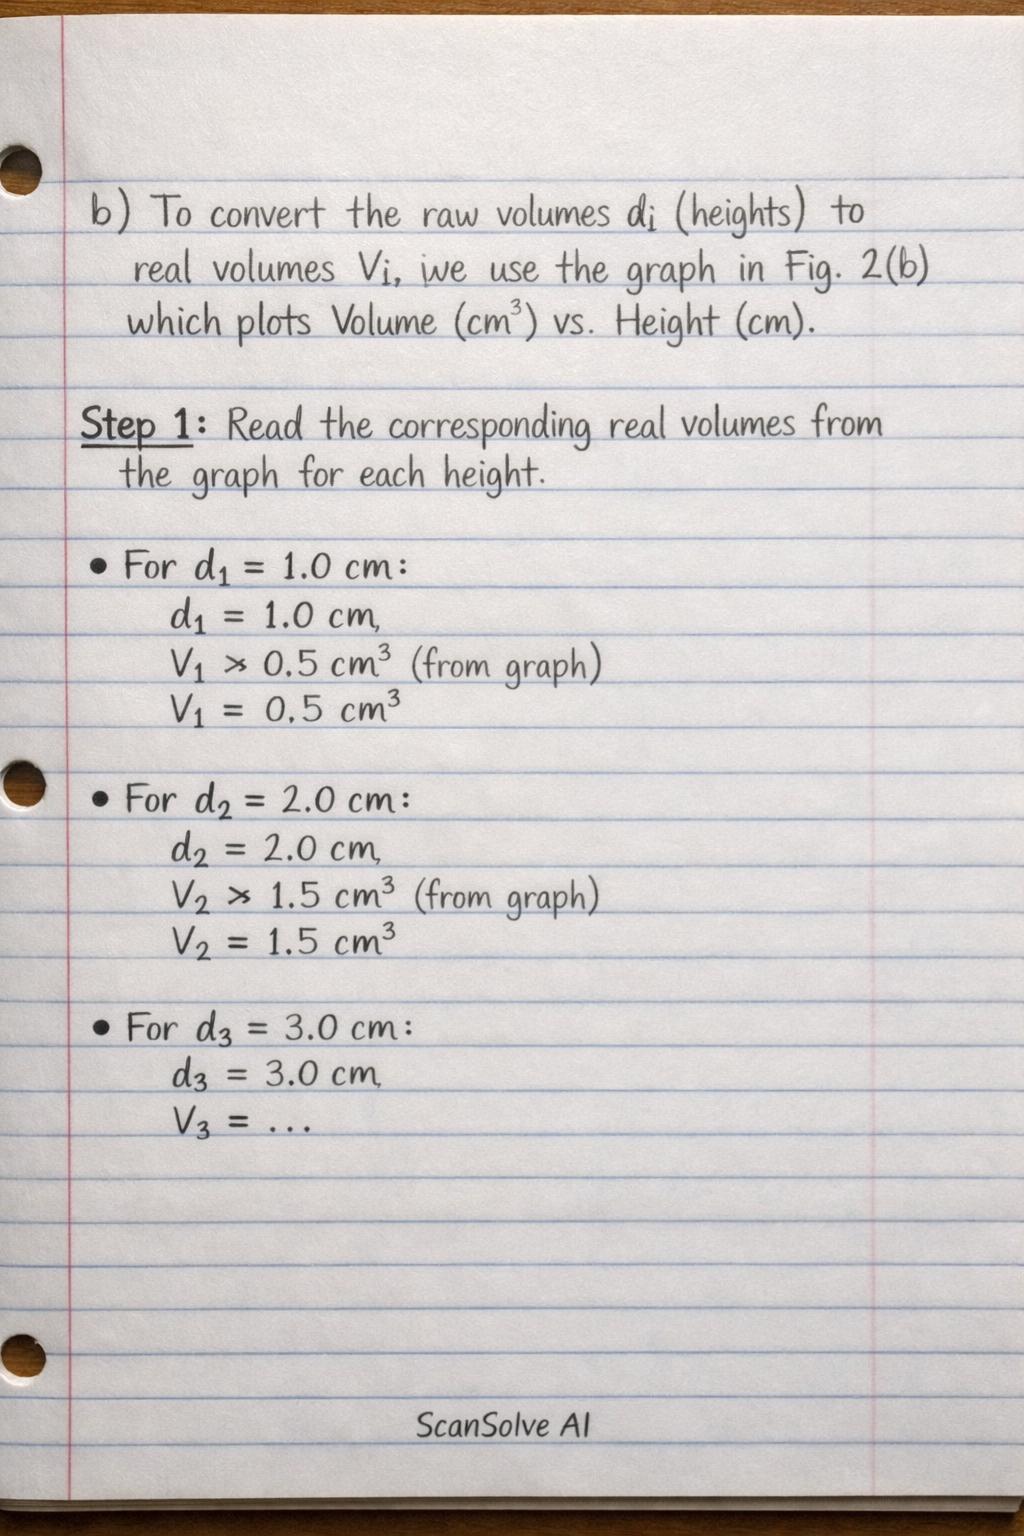 b) To convert the raw volumes di (heights) to
real volumes Vi, we use the graph in Fig. 2(b)
which plots Volume (cm³) vs. Height (cm).
Step 1: Read the corresponding real volumes from
the graph for each height.
• For d₁ = 1.0 cm:
d₁ = 1.0 cm,
V₁ ≯ 0.5 cm³ (from graph)
V₁ = 0.5 cm³
• For d₂ = 2.0 cm:
d₂ = 2.0 cm,
V₂ ≯ 1.5 cm³ (from graph)
V₂ = 1.5 cm³
• For d₃ = 3.0 cm:
d₃ = 3.0 cm,
V₃ = ...
ScanSolve AI